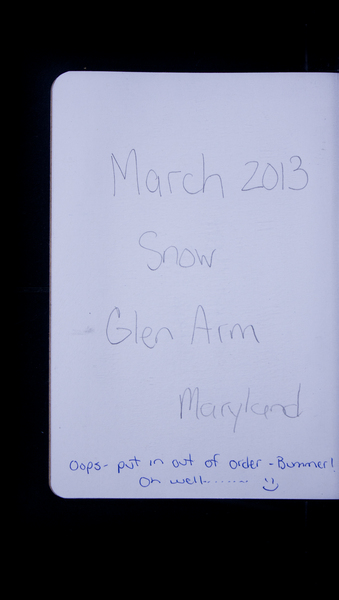 March 2013
Snow
Glen Arm
Maryland
Oops- put in out of order - Bummer!
Oh well........ :)